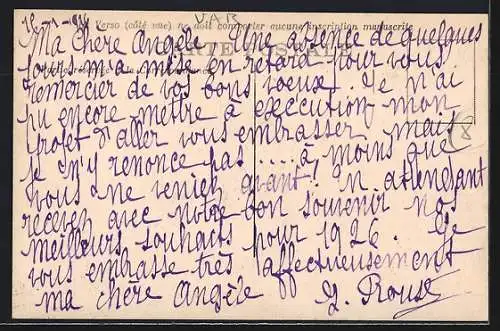 Verso (côté vue) ne doit comporter aucune inscription manuscrite
VAR
Ma chère Angèle Une absence de quelques
jours m'a mise en retard pour vous
remercier de vos bons voeux. Je n'ai
pu encore mettre à exécution mon
projet d'aller vous embrasser mais
je n'y renonce pas .... à moins que
vous ne veniez avant! En attendant
recevez avec notre bon souvenir nos
meilleurs souhaits pour 1926. Je
vous embrasse très affectueusement
ma chère Angèle